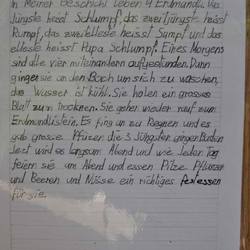 In meiner Geschicht leben 4 Erdmandlis. Das
Jüngste heisst Schlumpf, das zwertjüngste heisst
Rumpf, das zwerelleste heisst Sampf und das
elleste heisst Papa Schlumpf. Eines Morgens
sind alle vier miteinandern aufgestanden. Dann
gingen sie an den Bach um sich zu waschen,
das Wasser ist kühl. Sie holen ein grosses
Blatt zum trocknen. Sie gehen wieder rauf zum
Erdmandlistein. Es fing an zu Regnen und es
gab grosse Pfüzen die 3 Jüngsten gingen Baden
Jetzt wird es langsam Abend und wie jeden Tag
feiern sie am Abend und essen Pilze Pflanzen
und Beeren und Nüsse ein richtiges festessen
für sie.